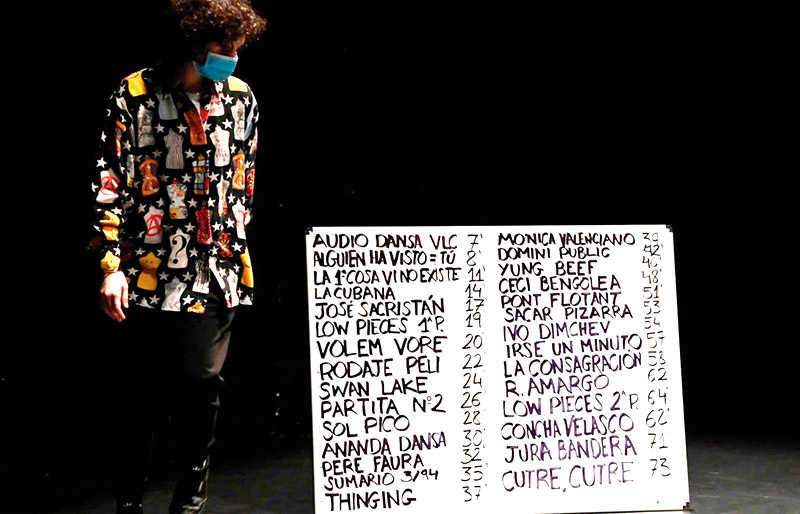 AUDIO DANSA VLC 7'
ALGUIEN HA VISTO = TÚ 8'
LA 1ª COSA VI NO EXISTE 11'
LA CUBANA 14
JOSÉ SACRISTÁN 17
LOW PIECES 1ª P. 19'
VOLEM VORE 20'
RODATE PELI 22
SWAN LAKE 24
PARTITA Nº 2 26
SOL PICO 28
ANANDA DANSA 30'
PERE FAURA 32
SUMARIO 3/94 35
THINGING 37
MONICA VALENCIANO 39'
DOMINI PUBLIC 42'
YUNG BEEF
CECI BENGOLEA 48'
PONT FLOTANT 51'
SACAR PIZARRA 53
IVO DIMCHEV 54
IRSE UN MINUTO 57
LA CONSAGRACIÓN 58
R. AMARGO 62
LOW PIECES 2ª P. 64'
CONCHA VELASCO 62'
JURA BANDERA 71
CUTRE, CUTRE 73